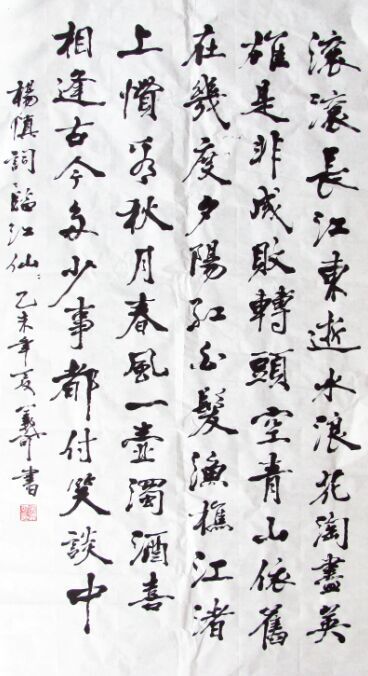 滚滚長江東逝水浪花淘盡英
雄是非成敗轉頭空青山依舊
在幾度夕陽紅白髮漁樵江渚
上慣看秋月春風一壺濁酒喜
相逢古今多少事都付笑談中
楊慎詞臨江仙乙未年夏書